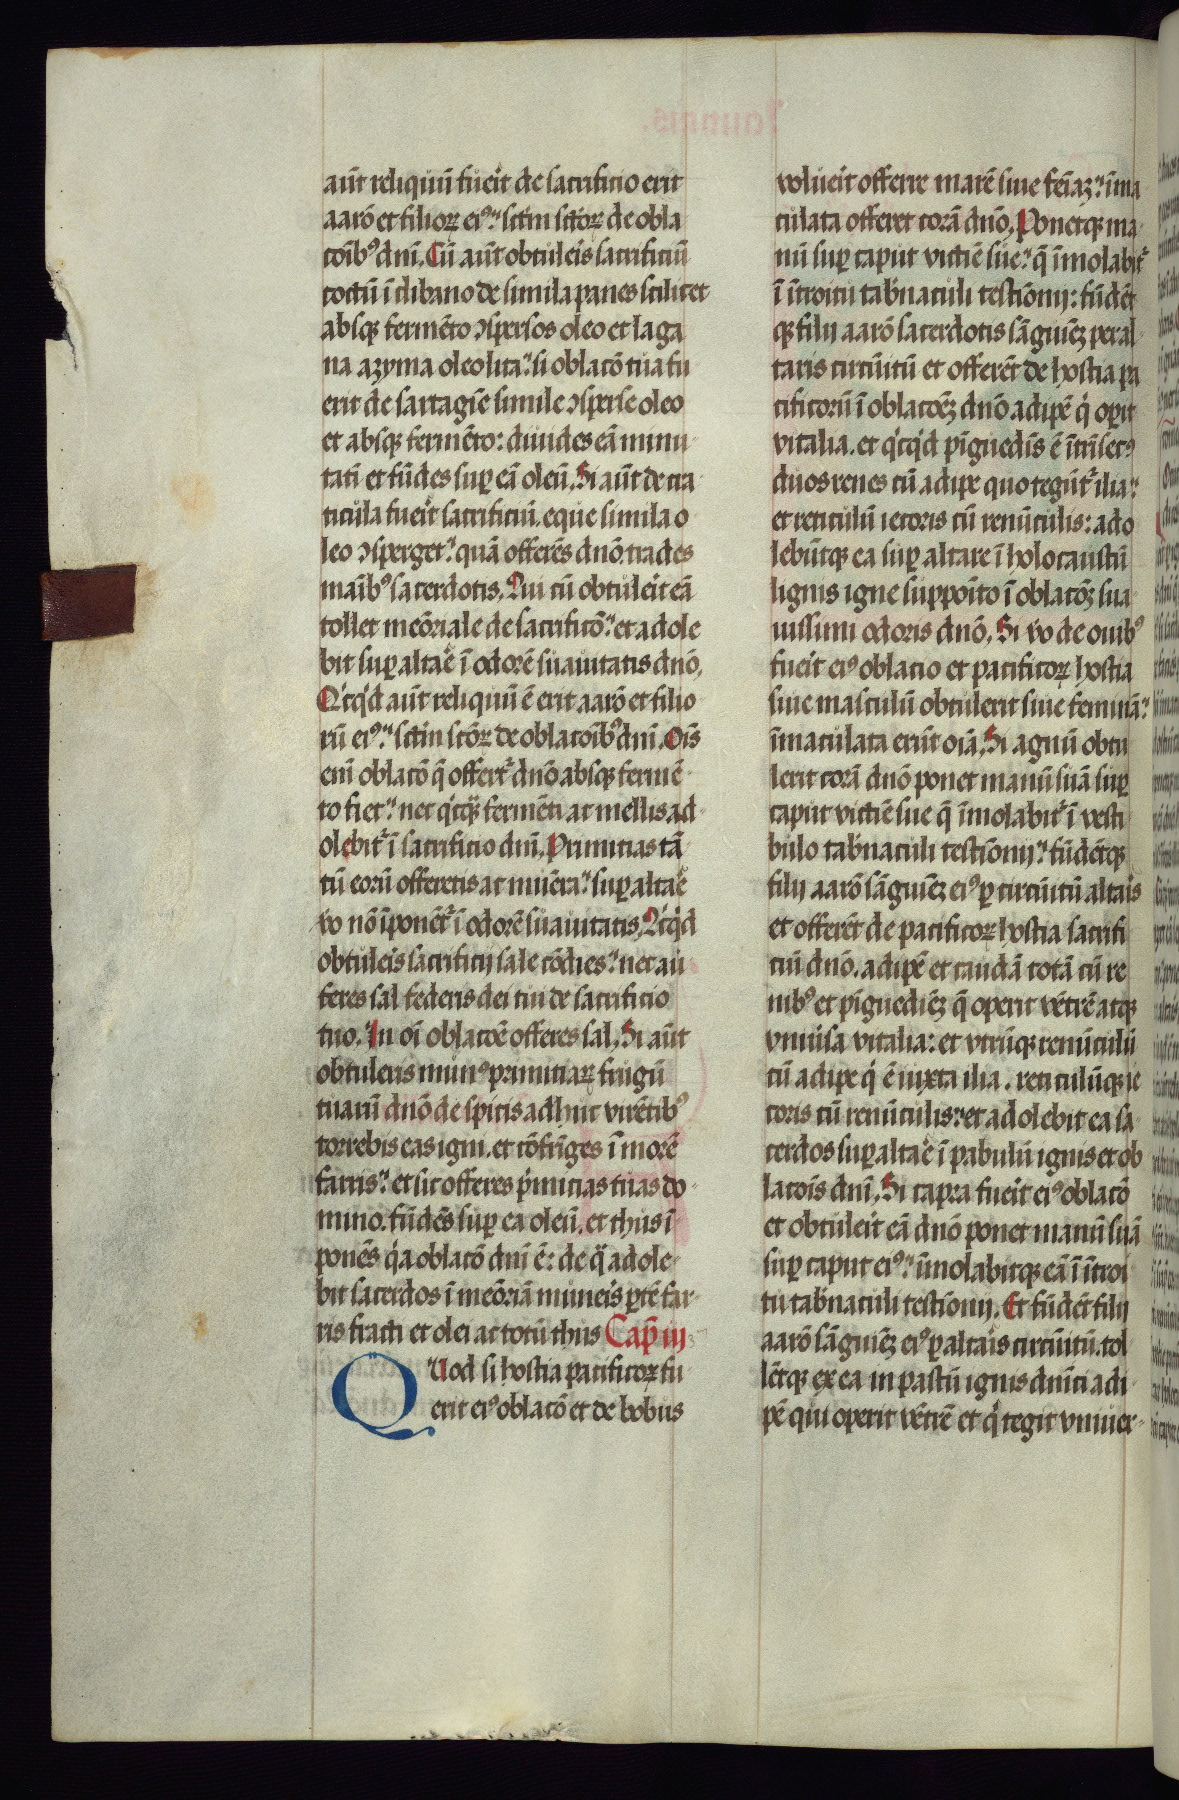 aūt reliquū fueit de sacrificio erit
aarō et filioꝝ eiꝰ. sctm̄ sctōꝝ de obla
cōibꝰ dn̄i. Cū aūt obtuleis sacrificiū
coctū ī clibano de simila panes scilicet
absqꝫ fermēto ꝯspersos oleo et laga
na azyma oleo lita. si oblacō tua fu
erit de sartagīe simile ꝯsperse oleo
et absqꝫ fermēto: diuides eā minu
tatī et fūdes suꝑ eā oleū. Si aūt de cra
ticula fueit sacrificiū. eque simila o
leo ꝯsperget. quā offerēs dn̄o. trades
maībꝰ sacerdotis. Qui cū obtuleit eā
tollet meōriale de sacrificō. et adole
bit suꝑ altaē ī odorē suauitatis dn̄o.
Qͥcqͥd aūt reliquū ē erit aarō et filio
rū eiꝰ. sctm̄ sctōꝝ de oblacōibꝰ dn̄i. Oīs
enī oblacō q̄ offert᷑ dn̄o absqꝫ fermē
to fiet. nec qͥcqᷓ fermēti ac mellis ad
olebit᷑ ī sacrificio dn̄i. Primitias tā
tū eorū offeretis ac mūera. suꝑ altaē
v̄o nō īponēt᷑ ī odorē suauitatis. Qͥcqͥd
obtuleis sacrificij sale cōdies. nec au
feres sal federis dei tui de sacrificio
tuo. In oī oblacōe offeres sal. Si aūt
obtuleris munꝰ primiciaꝝ frugū
tuarū dn̄o de spicis adhuc virētibꝰ
torrebis eas igni. et cōfrīges ī morē
farris. et sic offeres pͥmicias tuas do
mino. fūdēs suꝑ ea oleū. et thus ī
ponēs qͥa oblacō dn̄i ē: de qᷓ adole
bit sacerdos ī meōriā muneis ꝑtē far
ris fracti et olei ac totū thus Cap̄ iij
QUod si hostia pacificoꝝ fu
erit eiꝰ oblacō et de bobus
volueit offerre marē siue femīaꝫ. īma
culata offeret corā dn̄o. Ponetqꝫ ma
nū suꝑ caput victīe sue. q̄ īmolabit᷑
ī ītroitu tab̄naculi testīonij: fūdēt
qꝫ filij aarō sacerdotis sāguīeꝫ per al
taris circūitū et offerēt de hostia pa
cificorū ī oblacōeꝫ dn̄o adipē qͥ oꝑit
vitalia. et qͥcqͥd pīguedīs ē ītrīsecꝰ
duos renes cū adipe quo tegūt᷑ ilia.
et reticulū iecoris cū renūculis: ado
lebūtqꝫ ea suꝑ altare ī holocaustū
lignis igne supposito ī oblacōeꝫ sua
uissimi odoris dn̄o. Si v̄o de ouibꝰ
fueit eiꝰ oblacio et pacificoꝝ hostia
siue masculū obtulerit siue feminā.
īmaculata erūt oīa. Si agnū obtu
lerit corā dn̄o ponet manū suā suꝑ
caput victīe sue q̄ īmolabit᷑ ī vesti
bulo tab̄naculi testīonij. fūdētqꝫ
filij aarō sāguīeꝫ eiꝰ ꝑ circūitū altais
et offerēt de pacificoꝝ hostia sacrifi
ciū dn̄o. adipē et caudā totā cū re
nibꝰ et pīguedīeꝫ q̄ operit vētrē atqꝫ
vniūsa vitalia: et vtrūqꝫ renūculū
cū adipe qͥ ē iuxta ilia. reticulūqꝫ ie
coris cū renūculis. et adolebit ea sa
cerdos suꝑ altaē ī pabulū ignis et ob
lacōis dn̄i. Si capra fueit eiꝰ oblacō
et obtuleit eā dn̄o ponet manū suā
suꝑ caput eiꝰ. īmolabitqꝫ eā ī ītroi
tu tab̄naculi testīonij. Et fūdēt filij
aarō sāguīeꝫ eiꝰ ꝑ altais circūitū. tol
lētqꝫ ex ea in pastū ignis dn̄ici adi
pē qui operit vētrē et qͥ tegit vniuer